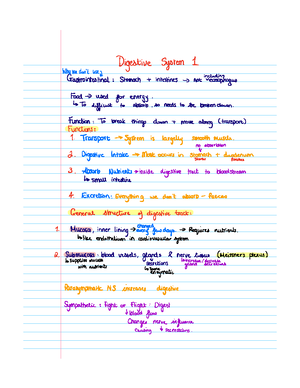 Digestive System 1
including
Gastrointestinal : Stomach + intestines → not oesophagus
Food → used for energy.
↳ To difficult to absorb so needs to be broken down.
Function : To break things down + move along (transport)
Functions:
1. Transport → System is largely smooth muscle.
no absorption
2. Digestive Intake → Most occurs in stomach + duodenum
3. Absorb Nutrients → inside digestive tract to bloodstream
↳ small intestine
4. Excretion: Everything we don't absorb - faeces
General structure of digestive tract:
1. Mucosa, inner lining → every few days → Requires nutrients.
↳ like endothelium in cardiovascular system
2. Submucosa: blood vessels, glands & nerve tissue (Meissner's plexus)
↳ supplies mucosa
with nutrients
secretions
↳ some
enzymatic
Parasympathetic N.S increases digestive
Sympathetic : Fight or Flight : Digest
↓ blood flow
Changes nerve influence
↓ secretions.